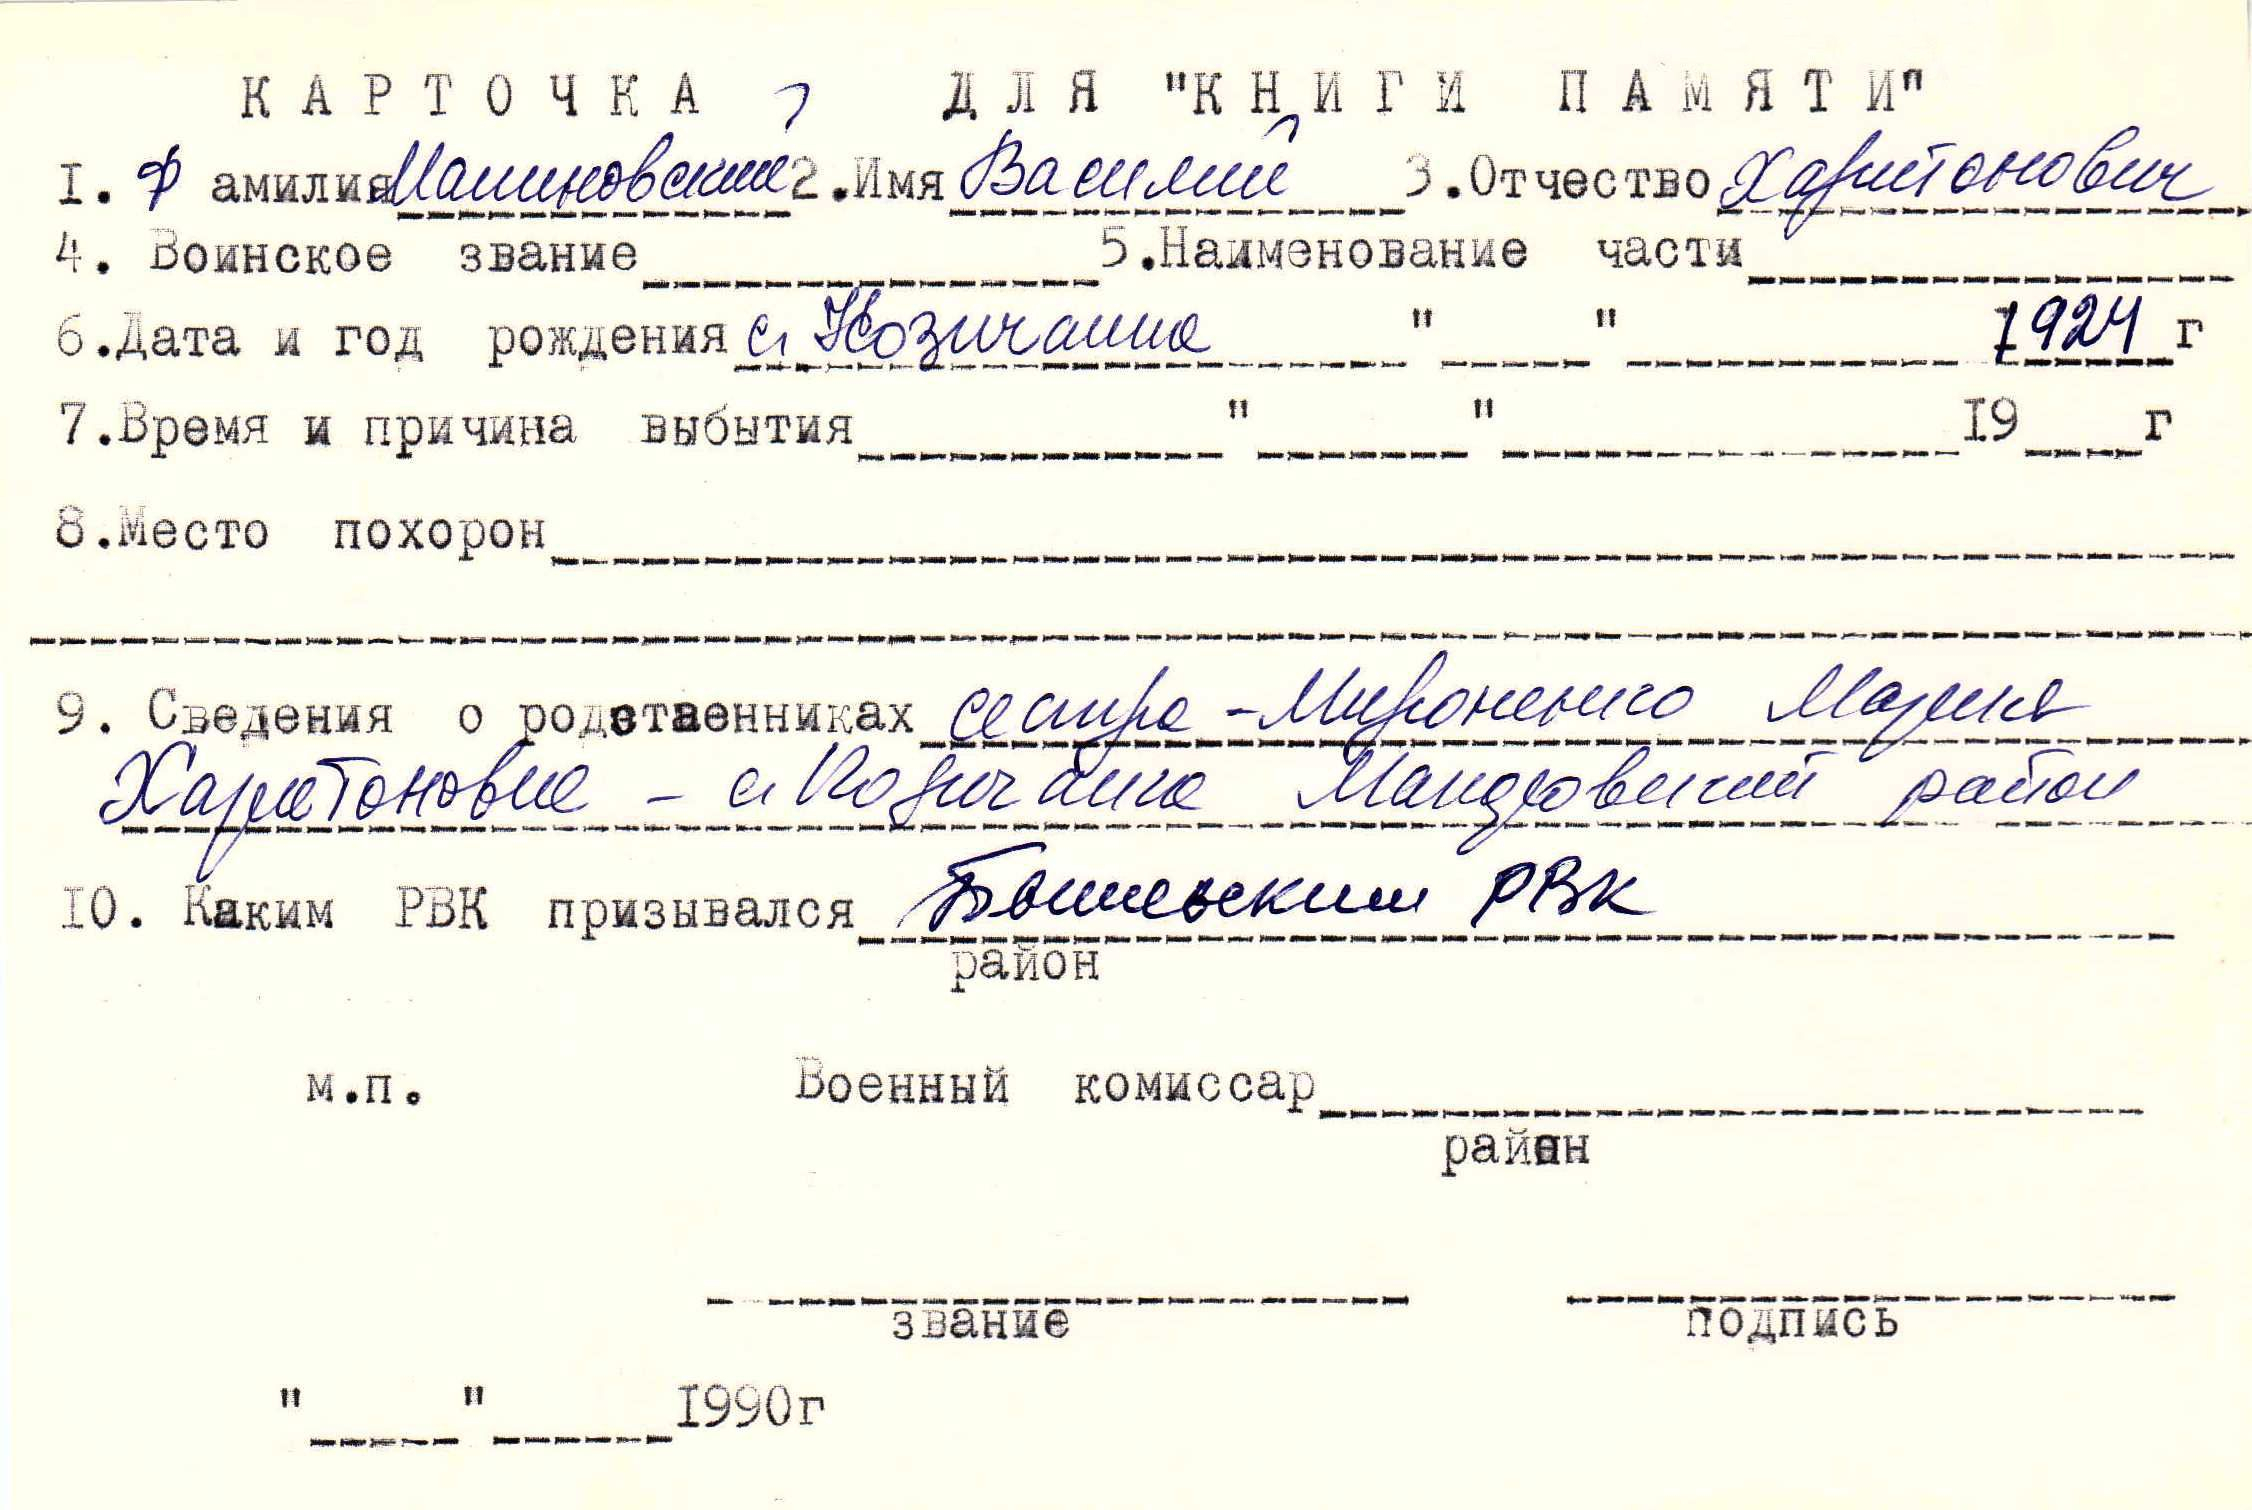 КАРТОЧКА ДЛЯ "КНИГИ ПАМЯТИ"
I. Фамилия Малиновский 2.Имя Василий 3.Отчество Харитонович
4. Воинское звание 5.Наименование части
6.Дата и год рождения с. Козичанка " " 1924 г
7.Время и причина выбытия " " 19 г
8.Место похорон
9. Сведения о родстаенниках сестра - Мироненко Мария
Харитоновна - с. Козичанка Макаровский район
10. Каким РВК призывался РВК
район
м.п. Военный комиссар
район
звание подпись
" " 1990г